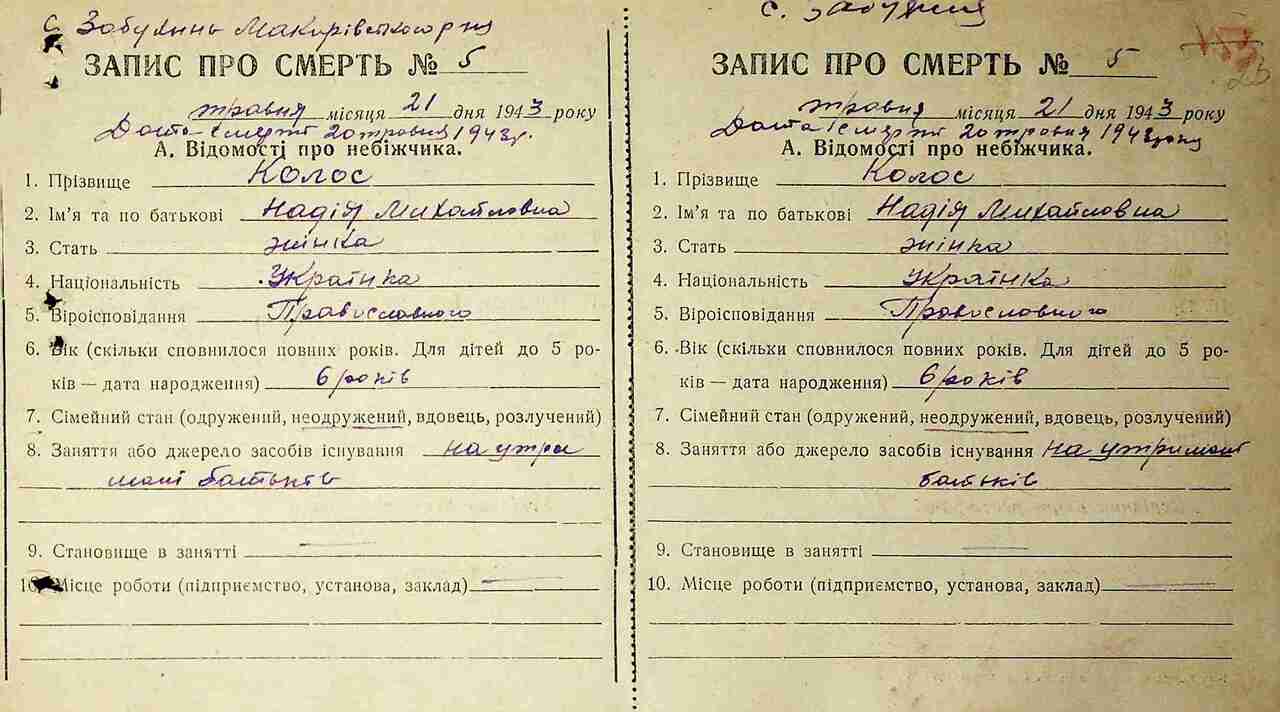 с. Забуянь Макарівського р-на
ЗАПИС ПРО СМЕРТЬ № 5
травня місяця 21 дня 1943 року
Дата смерті 20 травня 1943 р.
А. Відомості про небіжчика.
1. Прізвище Колос
2. Ім'я та по батькові Надія Михайловна
3. Стать жінка
4. Національність Українка
5. Віроісповідання Православного
6. Вік (скільки сповнилося повних років. Для дітей до 5 ро-
ків — дата народження) 6 років
7. Сімейний стан (одружений, неодружений, вдовець, розлучений)
8. Заняття або джерело засобів існування на утри
мані батьків
9. Становище в занятті —
10. Місце роботи (підприємство, установа, заклад) —
с. Забуяння
23
ЗАПИС ПРО СМЕРТЬ № 5
травня місяця 21 дня 1943 року
Дата смерті 20 травня 1943 року
А. Відомості про небіжчика.
1. Прізвище Колос
2. Ім'я та по батькові Надія Михайловна
3. Стать жінка
4. Національність Українка
5. Віроісповідання Православного
6. Вік (скільки сповнилося повних років. Для дітей до 5 ро-
ків — дата народження) 6 років
7. Сімейний стан (одружений, неодружений, вдовець, розлучений)
8. Заняття або джерело засобів існування на утримані
батьків
9. Становище в занятті —
10. Місце роботи (підприємство, установа, заклад) —